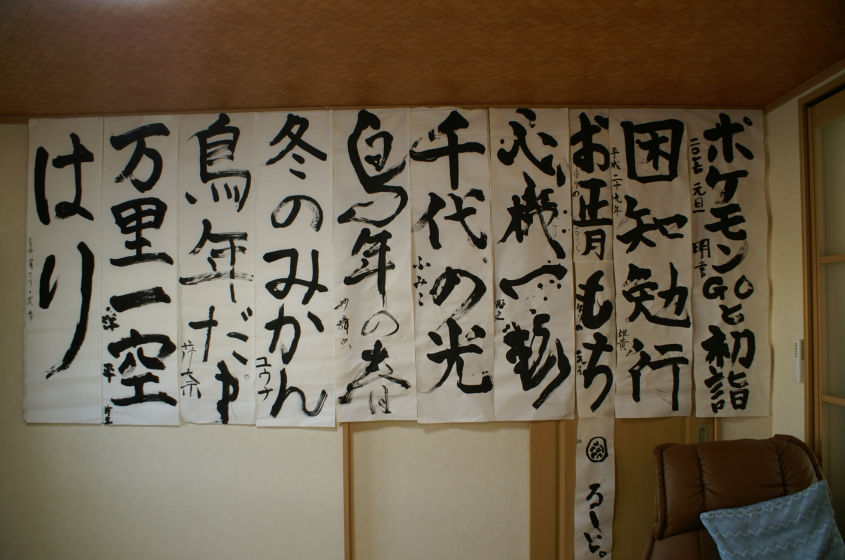 ポケモンGOと初詣
二〇一七 元旦 明書
困知勉行
平成二十九年
お正月
もち
心機一転
千代の光
ふみこ
鳥年の春
冬のみかん
ユウナ
鳥年だよ
万里一空
はり